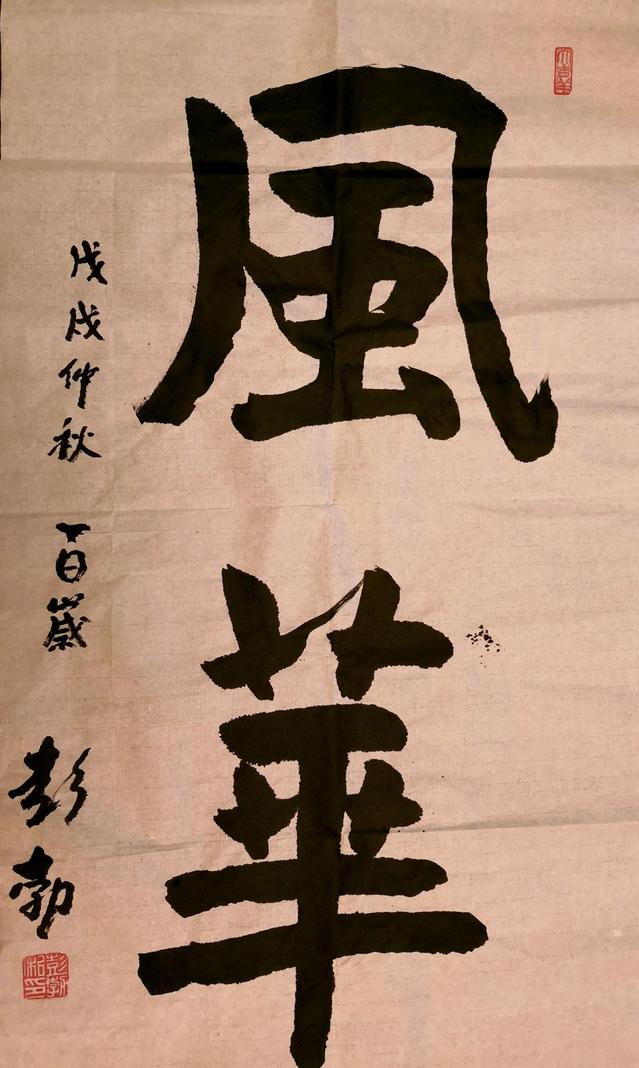 風華
戊戌仲秋 百歲
彭勃